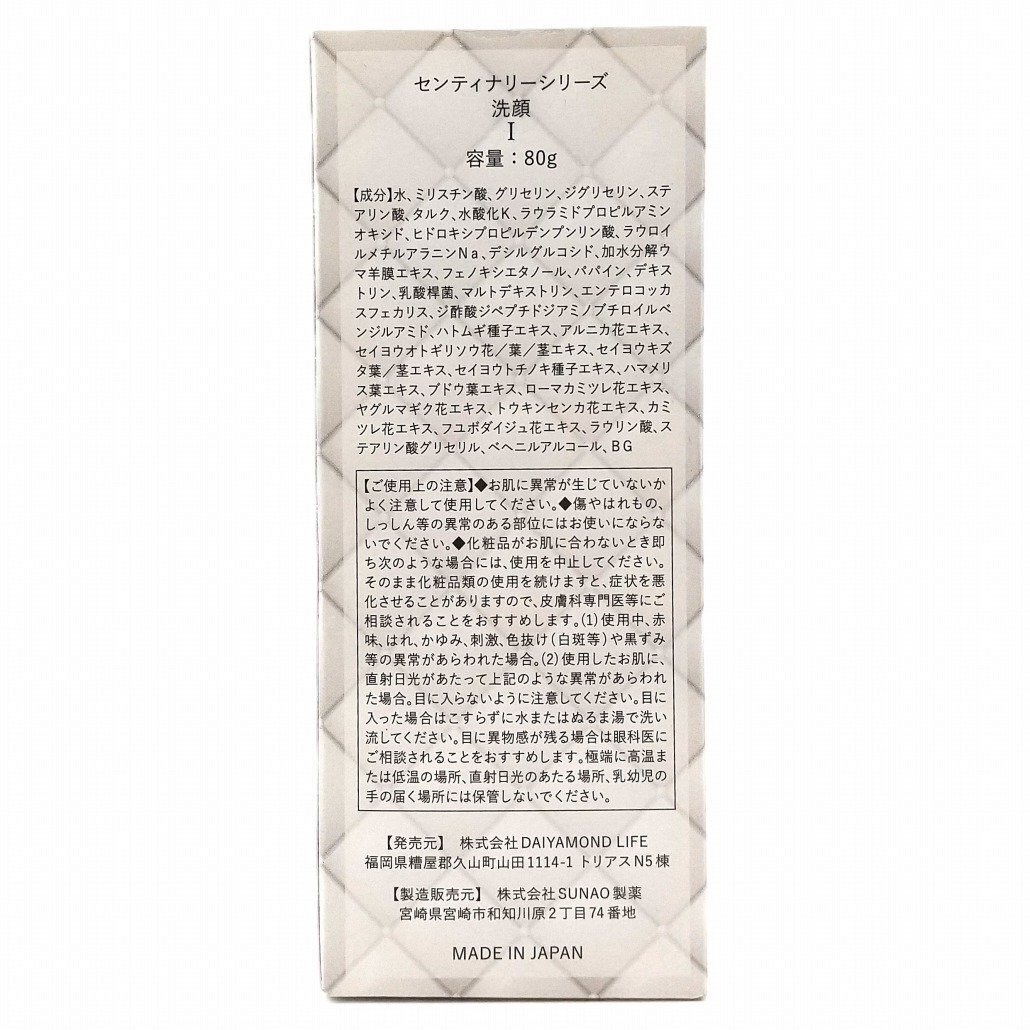 センティナリーシリーズ
洗顔
I
容量：80g
【成分】水、ミリスチン酸、グリセリン、ジグリセリン、ステ
アリン酸、タルク、水酸化K、ラウラミドプロピルアミン
オキシド、ヒドロキシプロピルデンプンリン酸、ラウロイ
ルメチルアラニンNa、デシルグルコシド、加水分解ウ
マ羊膜エキス、フェノキシエタノール、パパイン、デキス
トリン、乳酸桿菌、マルトデキストリン、エンテロコッカ
スフェカリス、ジ酢酸ジペプチドジアミノブチロイルベ
ンジルアミド、ハトムギ種子エキス、アルニカ花エキス、
セイヨウオトギリソウ花／葉／茎エキス、セイヨウキズ
タ葉／茎エキス、セイヨウトチノキ種子エキス、ハマメリ
ス葉エキス、ブドウ葉エキス、ローマカミツレ花エキス、
ヤグルマギク花エキス、トウキンセンカ花エキス、カミ
ツレ花エキス、フユボダイジュ花エキス、ラウリン酸、ス
テアリン酸グリセリル、ベヘニルアルコール、BG
【ご使用上の注意】◆お肌に異常が生じていないか
よく注意して使用してください。◆傷やはれもの、
しっしん等の異常のある部位にはお使いにならな
いでください。◆化粧品がお肌に合わないとき即
ち次のような場合には、使用を中止してください。
そのまま化粧品類の使用を続けますと、症状を悪
化させることがありますので、皮膚科専門医等にご
相談されることをおすすめします。(1)使用中、赤
味、はれ、かゆみ、刺激、色抜け(白斑等)や黒ずみ
等の異常があらわれた場合。(2)使用したお肌に、
直射日光があたって上記のような異常があらわれ
た場合。目に入らないように注意してください。目に
入った場合はこすらずに水またはぬるま湯で洗い
流してください。目に異物感が残る場合は眼科医に
ご相談されることをおすすめします。極端に高温ま
たは低温の場所、直射日光のあたる場所、乳幼児の
手の届く場所には保管しないでください。
【発売元】 株式会社DAIYAMOND LIFE
福岡県糟屋郡久山町山田1114-1 トリアスN5棟
【製造販売元】 株式会社SUNAO製薬
宮崎県宮崎市和知川原2丁目74番地
MADE IN JAPAN